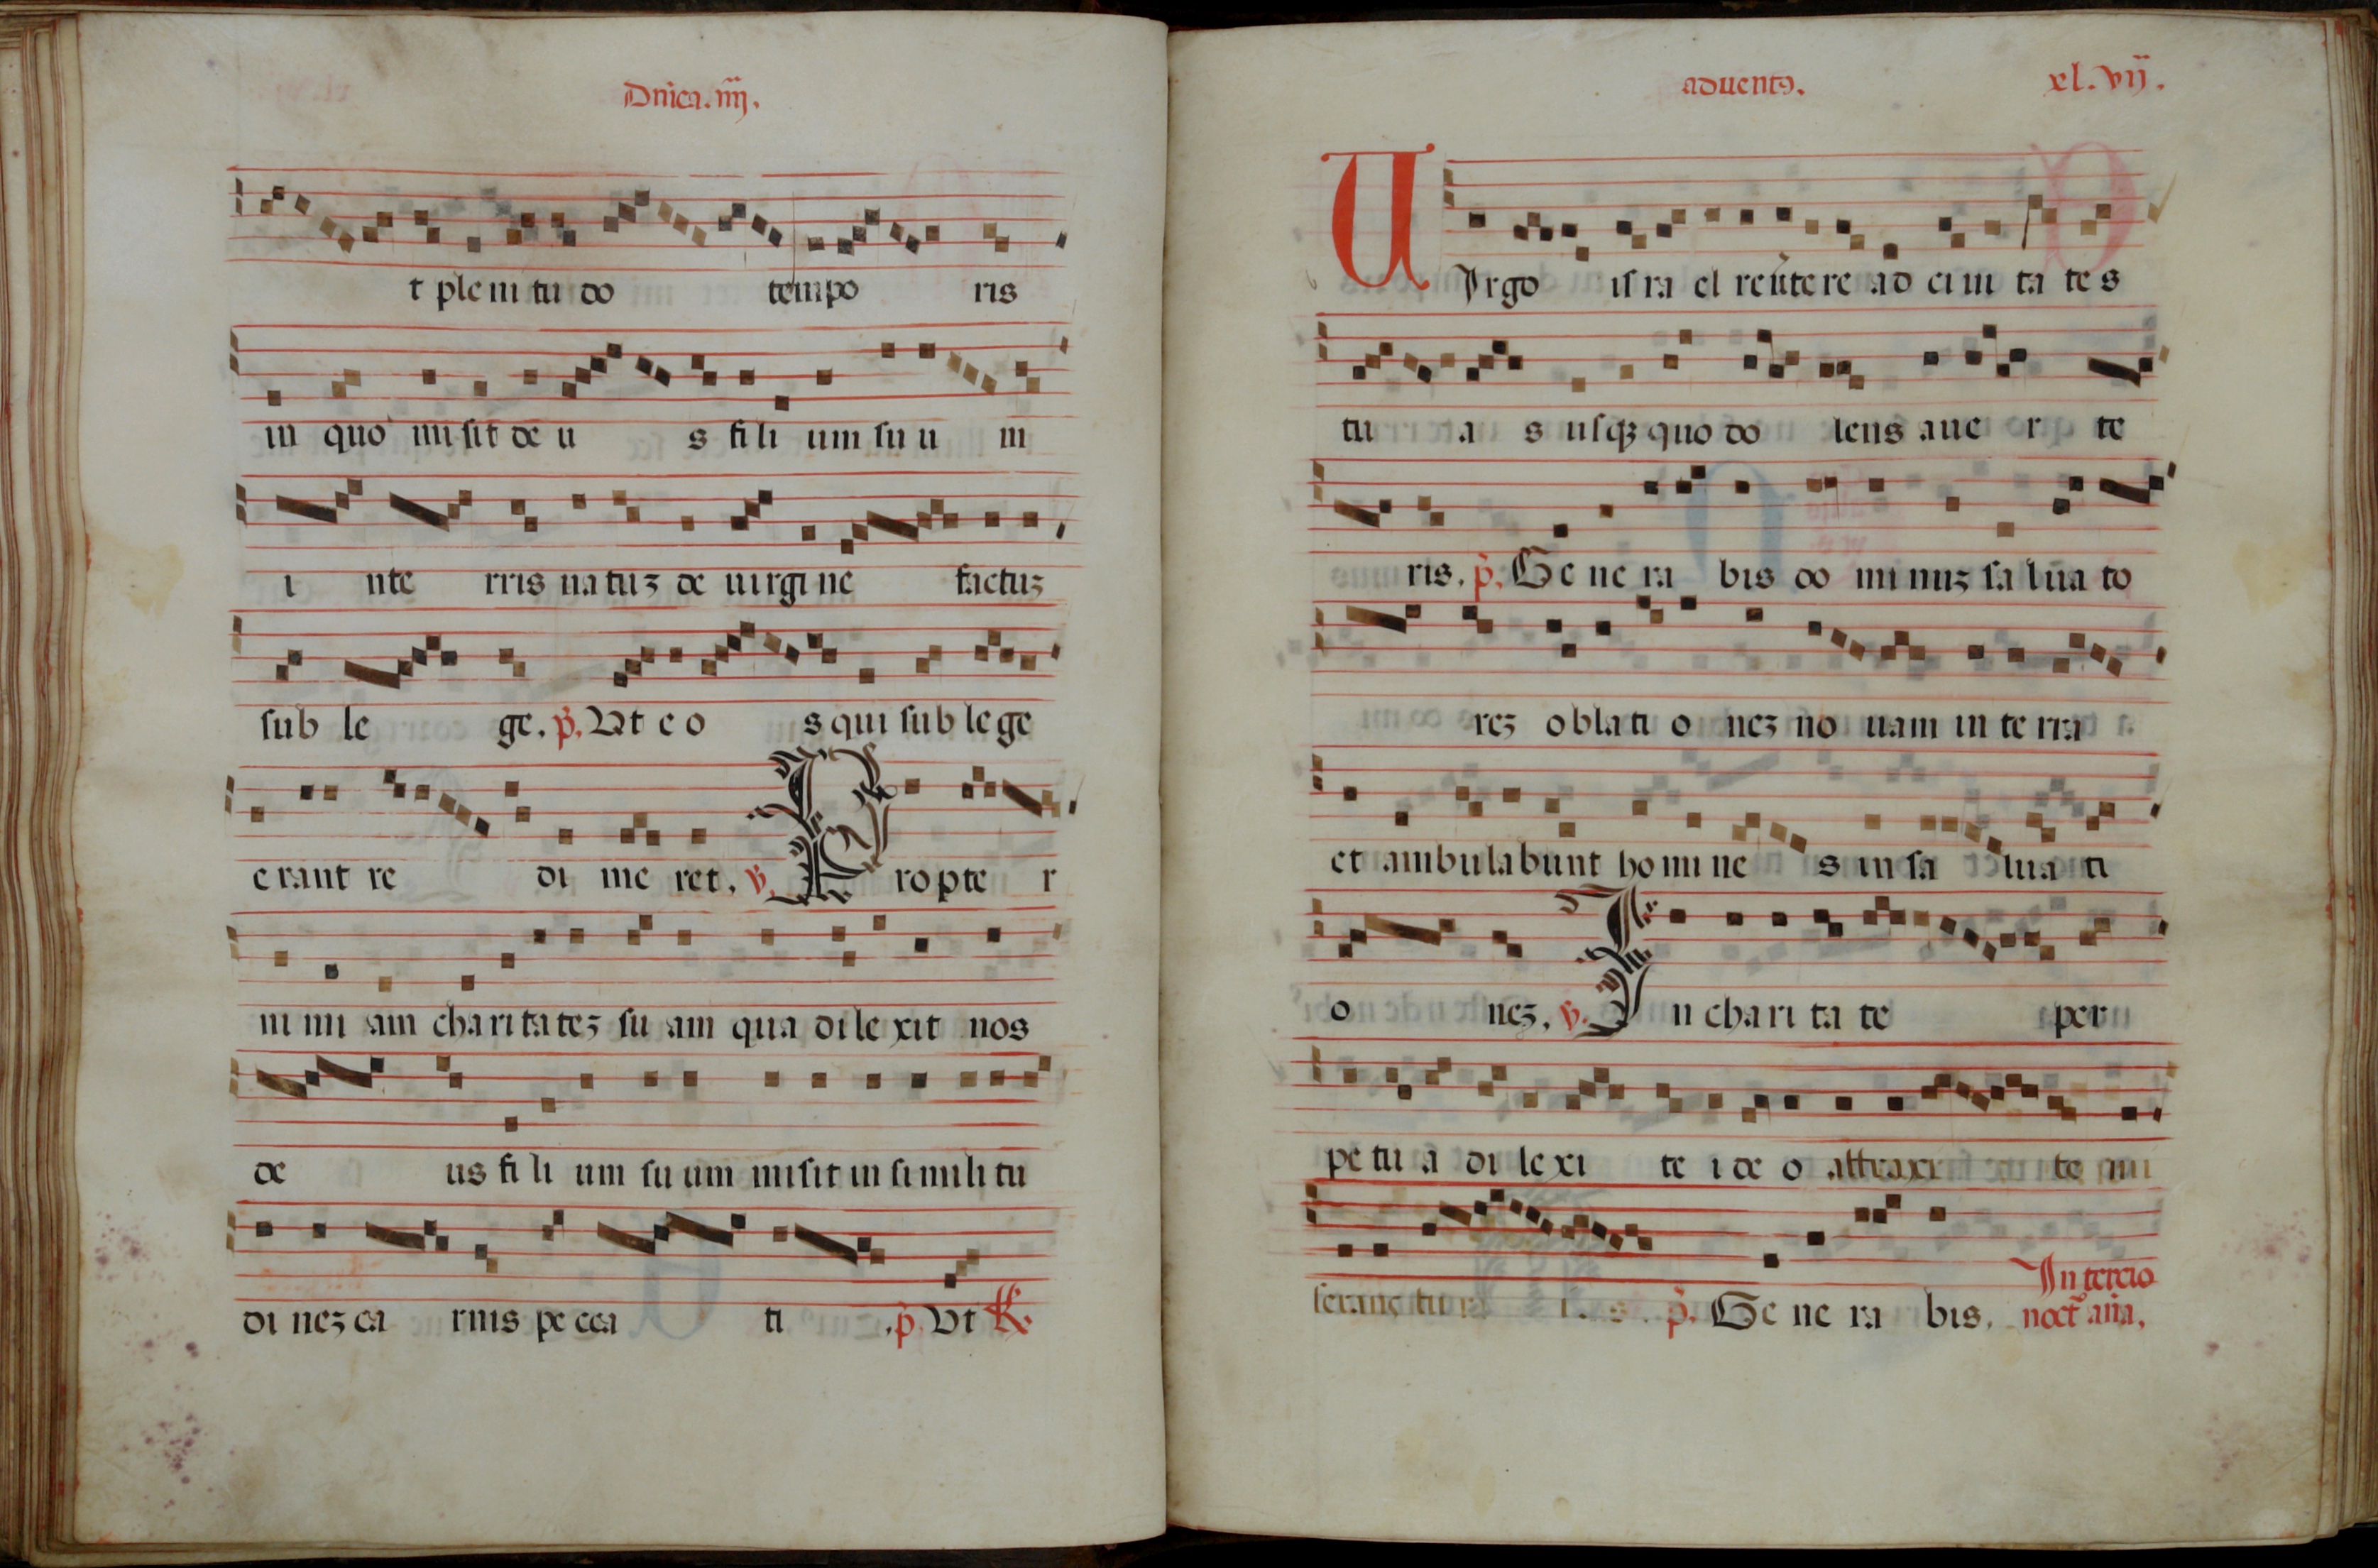 Dnica.iiij.
t ple ni tu do tempo ris
in quo mi sit de u s fi li um su u m
i nte rris natuz de uirgi ne factuz
sub le ge. p. Ut e o s qui sub le ge
e rant re di me ret. v. P ropte r
ni mi am charitatez su am qua dile xit nos
de us fi li um su um misit in simili tu
di nez ca rnis pe cca ti . p. Ut R.
aduentꝯ. xl.vij.
U Irgo isra el reũte re ad ciui ta te s
tu a s usqꝫ quo do lens aue r te
ris. p. Ge ne ra bis do minuz sa lua to
rez oblati o nez no uam in te rra
et ambulabunt homi ne s in sa lua ti
o nez. v. I n chari ta te per
pe tu a di lexi te i de o attraxi te mi
serans tu i s . p. Ge ne ra bis. In tercio
noct̉ aña.